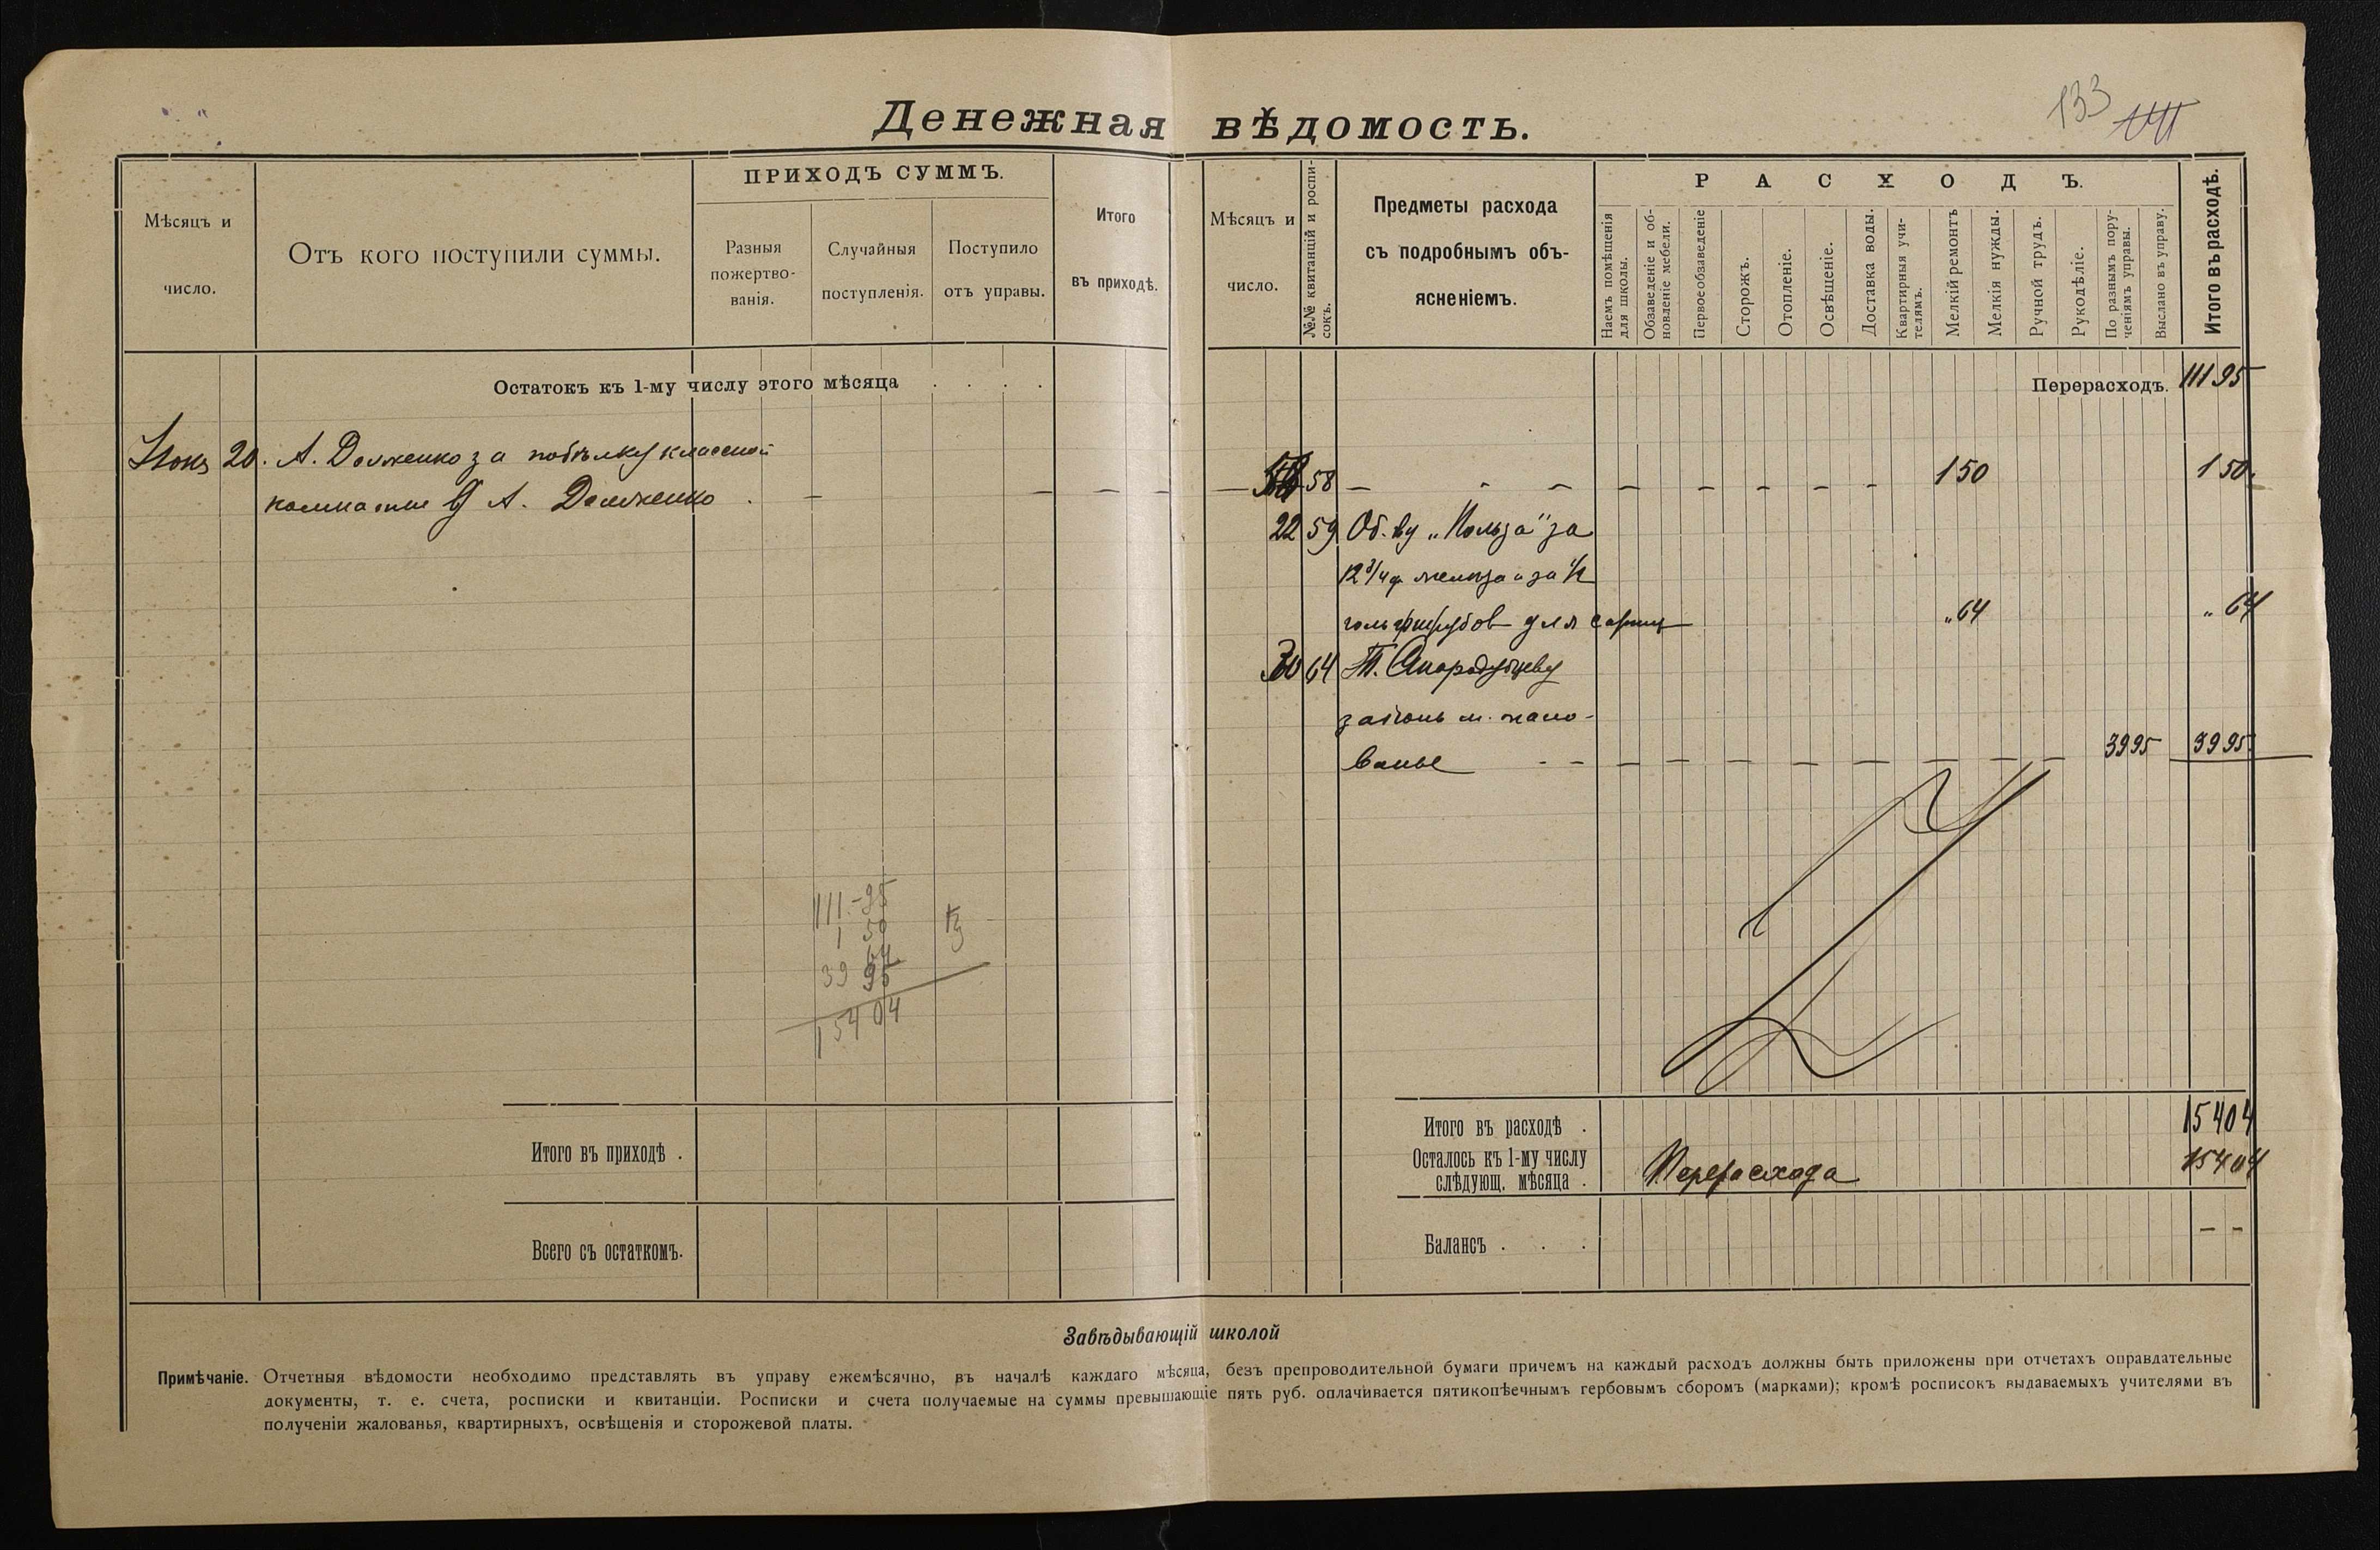 133
Денежная вѣдомость.
Мѣсяцъ и
число.
Отъ кого поступили суммы.
ПРИХОДЪ СУММЪ.
Разныя
пожертво-
ванія.
Случайныя
поступленія.
Поступило
отъ управы.
Итого
въ приходѣ.
Остатокъ къ 1-му числу этого мѣсяца . . . .
20. А. Долженко за побѣлку классной
комнаты А. Долженко
111.-95
1 50
64
39 95
154 04
Итого въ приходѣ .
Всего съ остаткомъ.
Мѣсяцъ и
число.
№№ квитанцій и роспи-
сокъ.
Предметы расхода
съ подробнымъ объ-
ясненіемъ.
РАСХОДЪ.
Наемъ помѣщенія
для школы.
Обзаведеніе и об-
новленіе мебели.
Первое обзаведеніе
Сторожъ.
Отопленіе.
Освѣщеніе.
Доставка воды.
Квартирныя учи-
телямъ.
Мелкій ремонтъ
Мелкія нужды.
Ручной трудъ.
Рукодѣліе.
По разнымъ пору-
ченіямъ управы.
Выслано въ управу.
Итого въ расходѣ.
Перерасходъ. 111 95
58 — - — — — — — — - 1 50 1 50.
22 59 Об-ву „Польза" за
12 3/4 ф. желѣза и за 1/2
для „ 64 „ 64
30 64
за іюнь м. жало-
ванье - - — — — — — — — — — 39 95 39 95
Итого въ расходѣ . 154 04
Осталось къ 1-му числу
слѣдующ. мѣсяца . Перерасхода 154 04
Балансъ . . . — -
Завѣдывающій школой
Примѣчаніе. Отчетныя вѣдомости необходимо представлять въ управу ежемѣсячно, въ началѣ каждаго мѣсяца, безъ препроводительной бумаги причемъ на каждый расходъ должны быть приложены при отчетахъ оправдательные
документы, т. е. счета, росписки и квитанціи. Росписки и счета получаемые на суммы превышающіе пять руб. оплачивается пятикопѣечнымъ гербовымъ сборомъ (марками); кромѣ росписокъ выдаваемыхъ учителями въ
полученіи жалованья, квартирныхъ, освѣщенія и сторожевой платы.